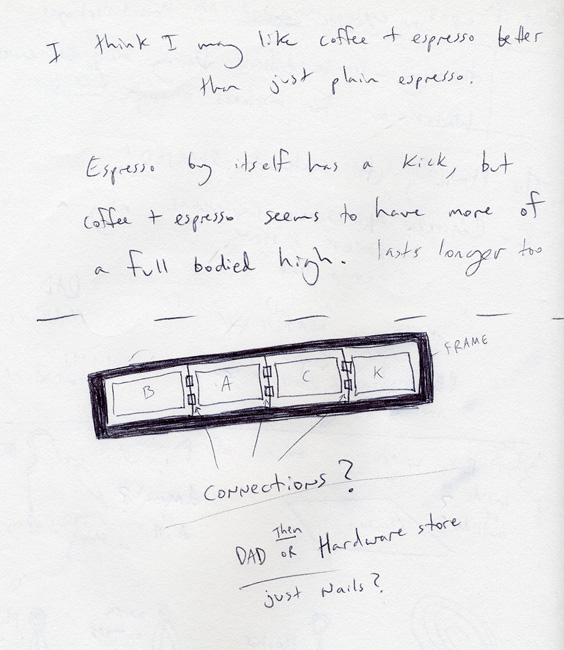 I think I may like coffee + espresso better
than just plain espresso.
Espresso by itself has a kick, but
coffee + espresso seems to have more of
a full bodied high. lasts longer too
FRAME
B A C K
CONNECTIONS?
Then
DAD OR Hardware store
just Nails?